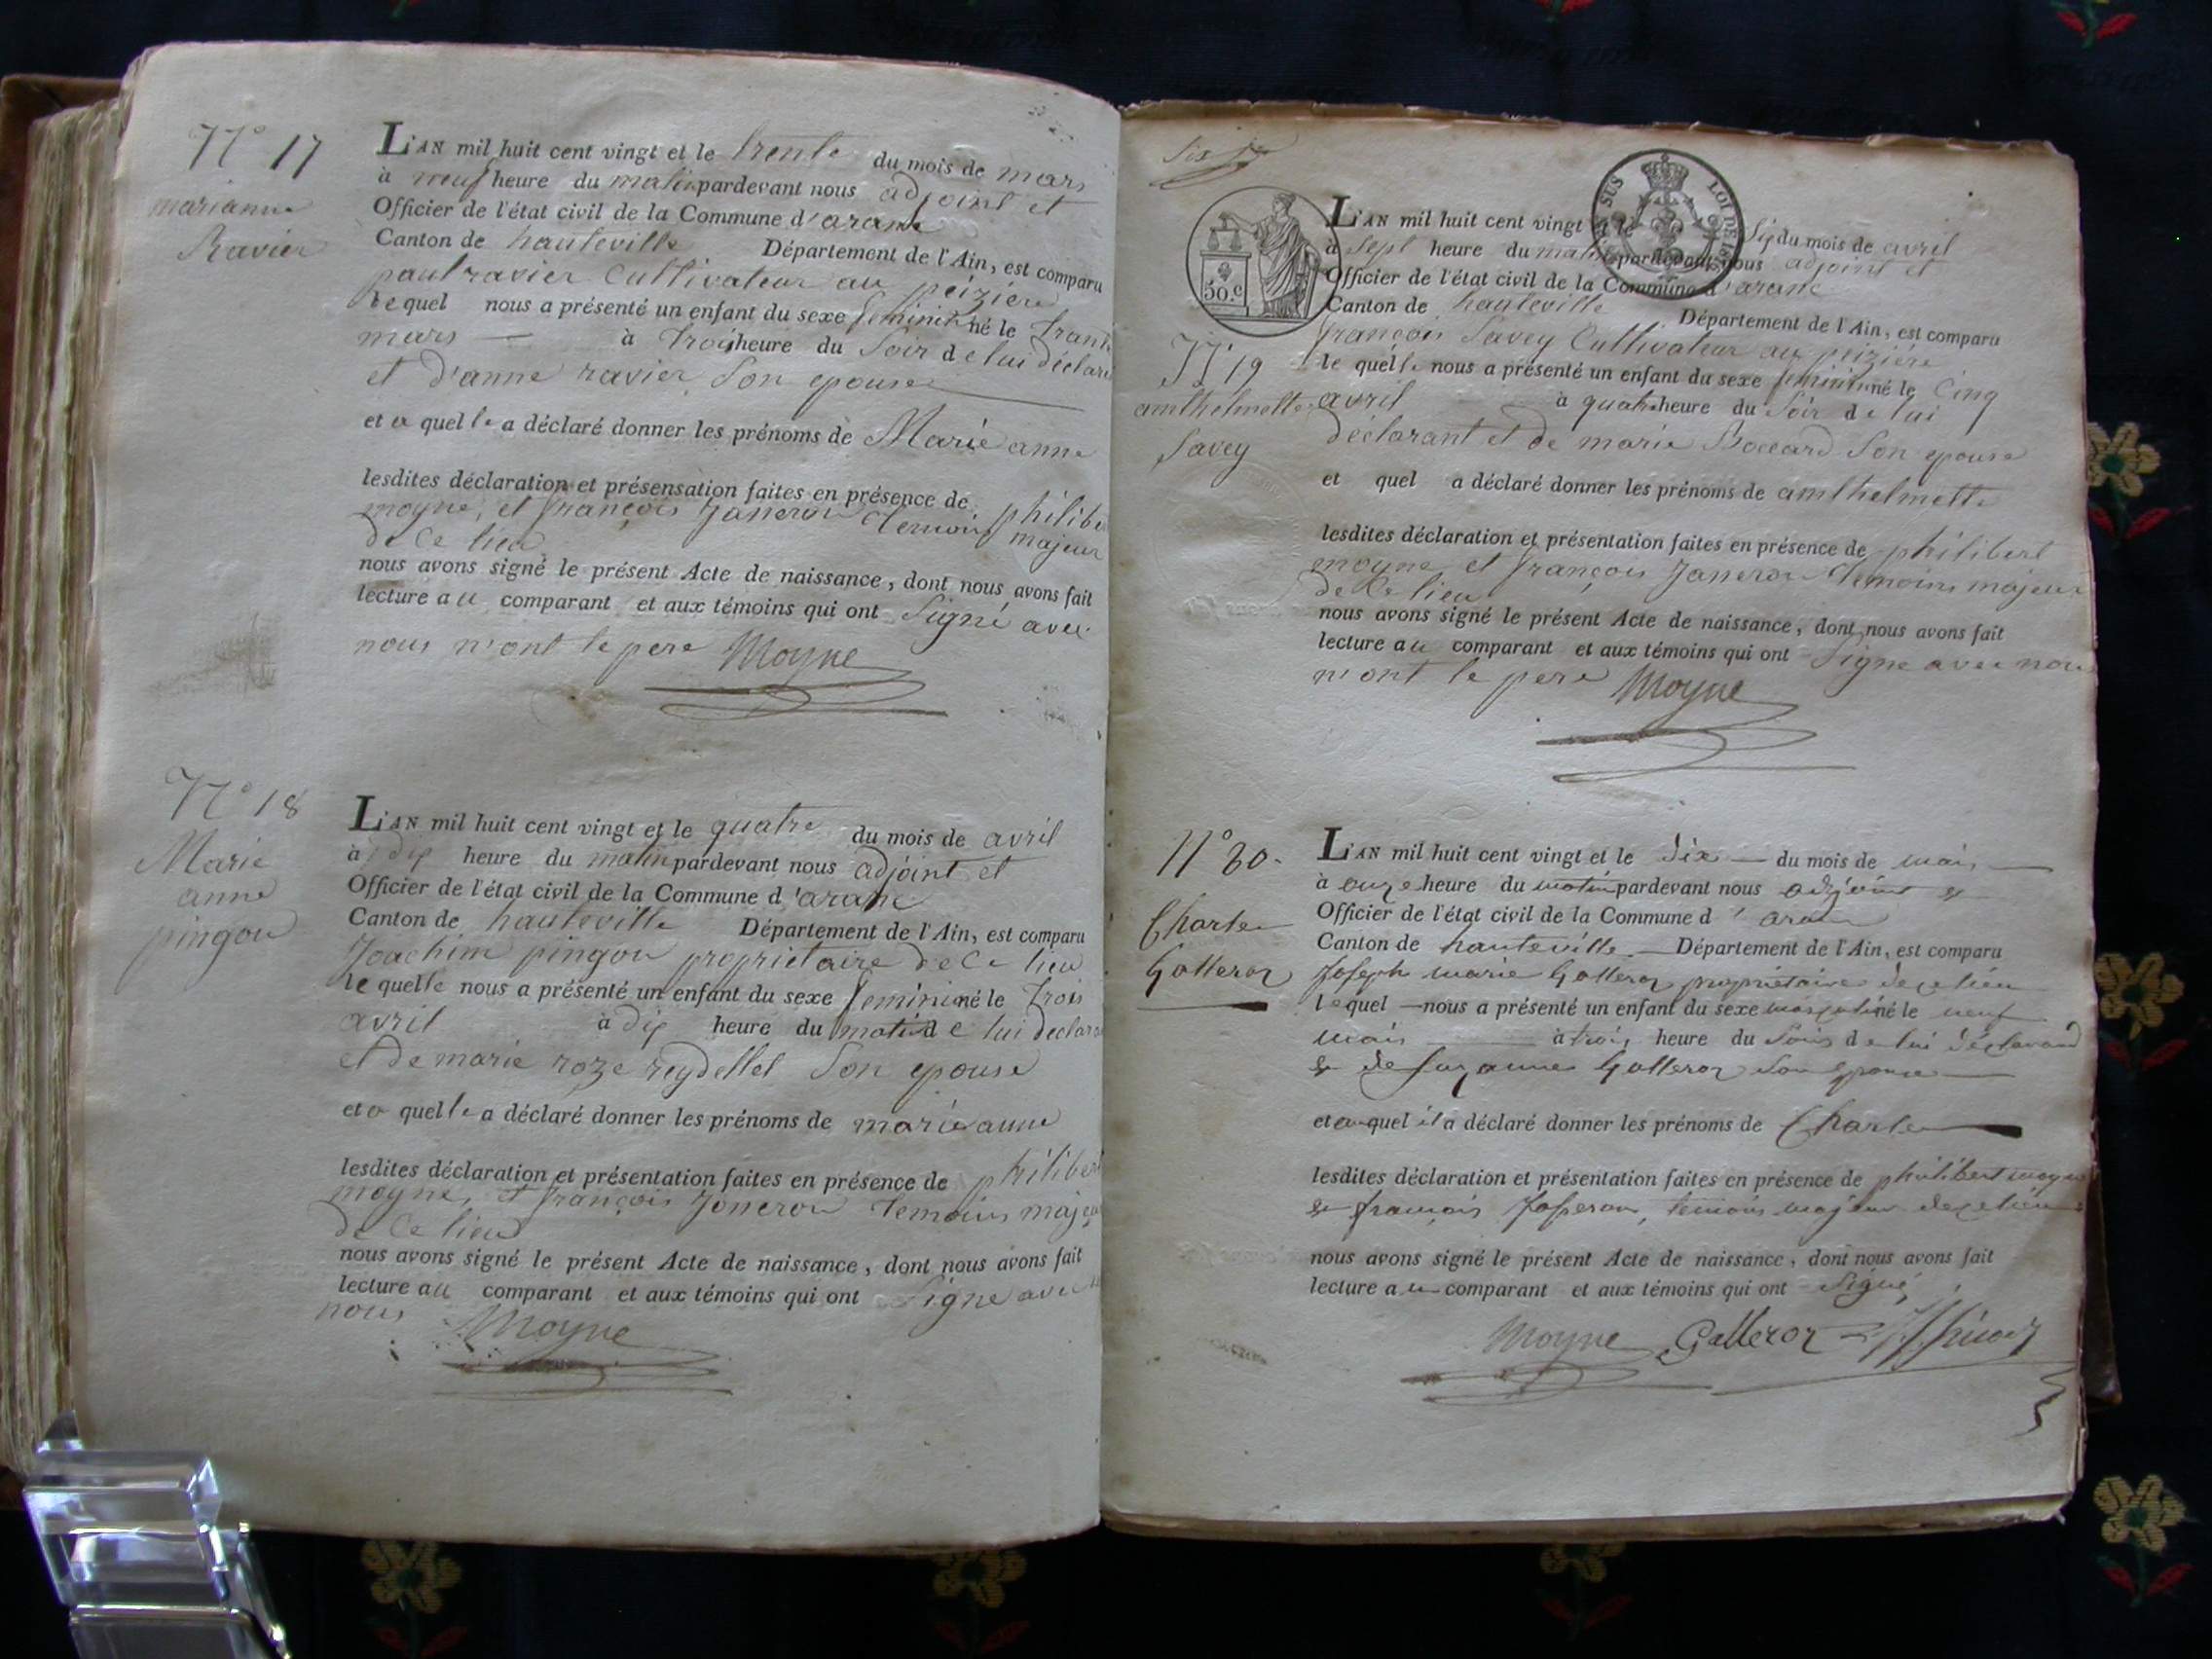 N° 17
marianne
Ravier
L'AN mil huit cent vingt et le trente du mois de mars
à neuf heure du matin pardevant nous adjoint et
Officier de l'état civil de la Commune d'arane
Canton de hauteville Département de l'Ain, est comparu
paul ravier Cultivateur au peizière
lequel nous a présenté un enfant du sexe feminin né le trante
mars à trois heure du Soir de lui déclare
et d'anne ravier Son epouse
et a quelle a déclaré donner les prénoms de Marie anne
lesdites déclaration et présensation faites en présence de philiber
moyne, et françois Janeron temoins majeur
de Ce lieu
nous avons signé le présent Acte de naissance, dont nous avons fait
lecture au comparant et aux témoins qui ont Signé avec
nous n'ont le pere Moyne
N° 18
Marie
anne
pingon
L'AN mil huit cent vingt et le quatre du mois de avril
à dix heure du matin pardevant nous adjoint et
Officier de l'état civil de la Commune d'arane
Canton de hauteville Département de l'Ain, est comparu
Joachim pingon proprietaire de Ce lieu
le quelle nous a présenté un enfant du sexe feminin né le trois
avril à dix heure du matin de lui declara
et de marie roze reydellet Son epouse
et a quelle a déclaré donner les prénoms de marie anne
lesdites déclaration et présentation faites en présence de philibert
moyne, et françois Joneron temoins majeu
de Ce lieu
nous avons signé le présent Acte de naissance, dont nous avons fait
lecture au comparant et aux témoins qui ont Signe avec
nous Moyne
Six
50.c
SUS LOI DE
N° 19
amthelmette
Savey
L'AN mil huit cent vingt et le Six du mois de avril
à Sept heure du matin pardevant nous adjoint et
Officier de l'état civil de la Commune d'arane
Canton de hauteville Département de l'Ain, est comparu
françois Savey Cultivateur au peizière
le quelle nous a présenté un enfant du sexe feminin né le Cinq
avril à quatre heure du Soir de lui
déclarant et de marie Boccard Son epouse
et quel a déclaré donner les prénoms de amthelmette
lesdites déclaration et présentation faites en présence de philibert
moyne et françois Janeron temoins majeur
de Ce lieu
nous avons signé le présent Acte de naissance, dont nous avons fait
lecture au comparant et aux témoins qui ont Signe avec nou
n'ont le pere Moyne
N° 20.
Charle
Golleron
L'AN mil huit cent vingt et le Dix du mois de mais
à onze heure du matin pardevant nous adjoint &
Officier de l'état civil de la Commune d'aran
Canton de hauteville Département de l'Ain, est comparu
Joseph marie Golleron propriétaire de ce lieu
lequel nous a présenté un enfant du sexe masculin né le neuf
mais à trois heure du Soir de lui déclarant
& de Suzanne Golleron Son Epouse
et auquel il a déclaré donner les prénoms de Charle
lesdites déclaration et présentation faites en présence de philibert moyne
& françois Joseron, temoins majeur de ce lieu
nous avons signé le présent Acte de naissance, dont nous avons fait
lecture au comparant et aux témoins qui ont Signé
Moyne Golleron